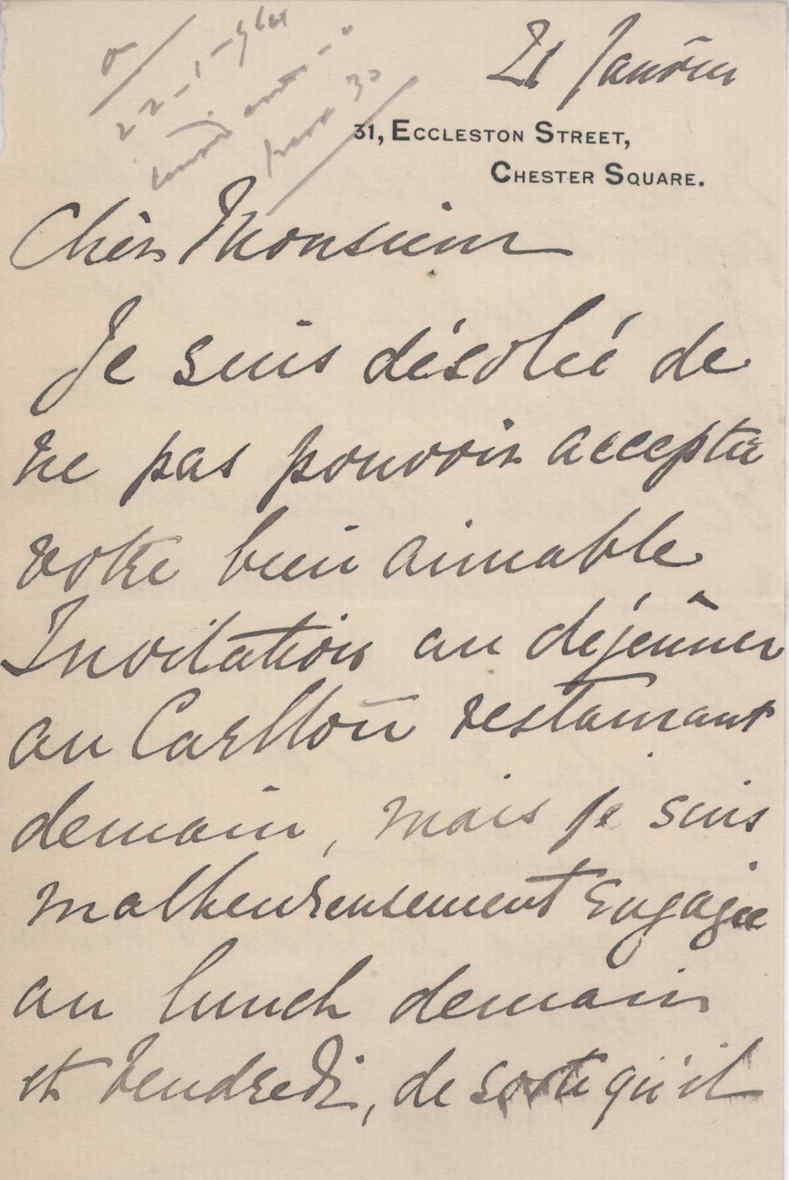 21 Janvier
22-1-
31, ECCLESTON STREET,
CHESTER SQUARE.
Cher Monsieur
Je suis désolée de
ne pas pouvoir accepter
votre bien aimable
Invitation au déjeûner
au Carlton restaurant
demain, mais je suis
malheureusement engagée
au lunch demain
et Vendredi, de sorte qu'il